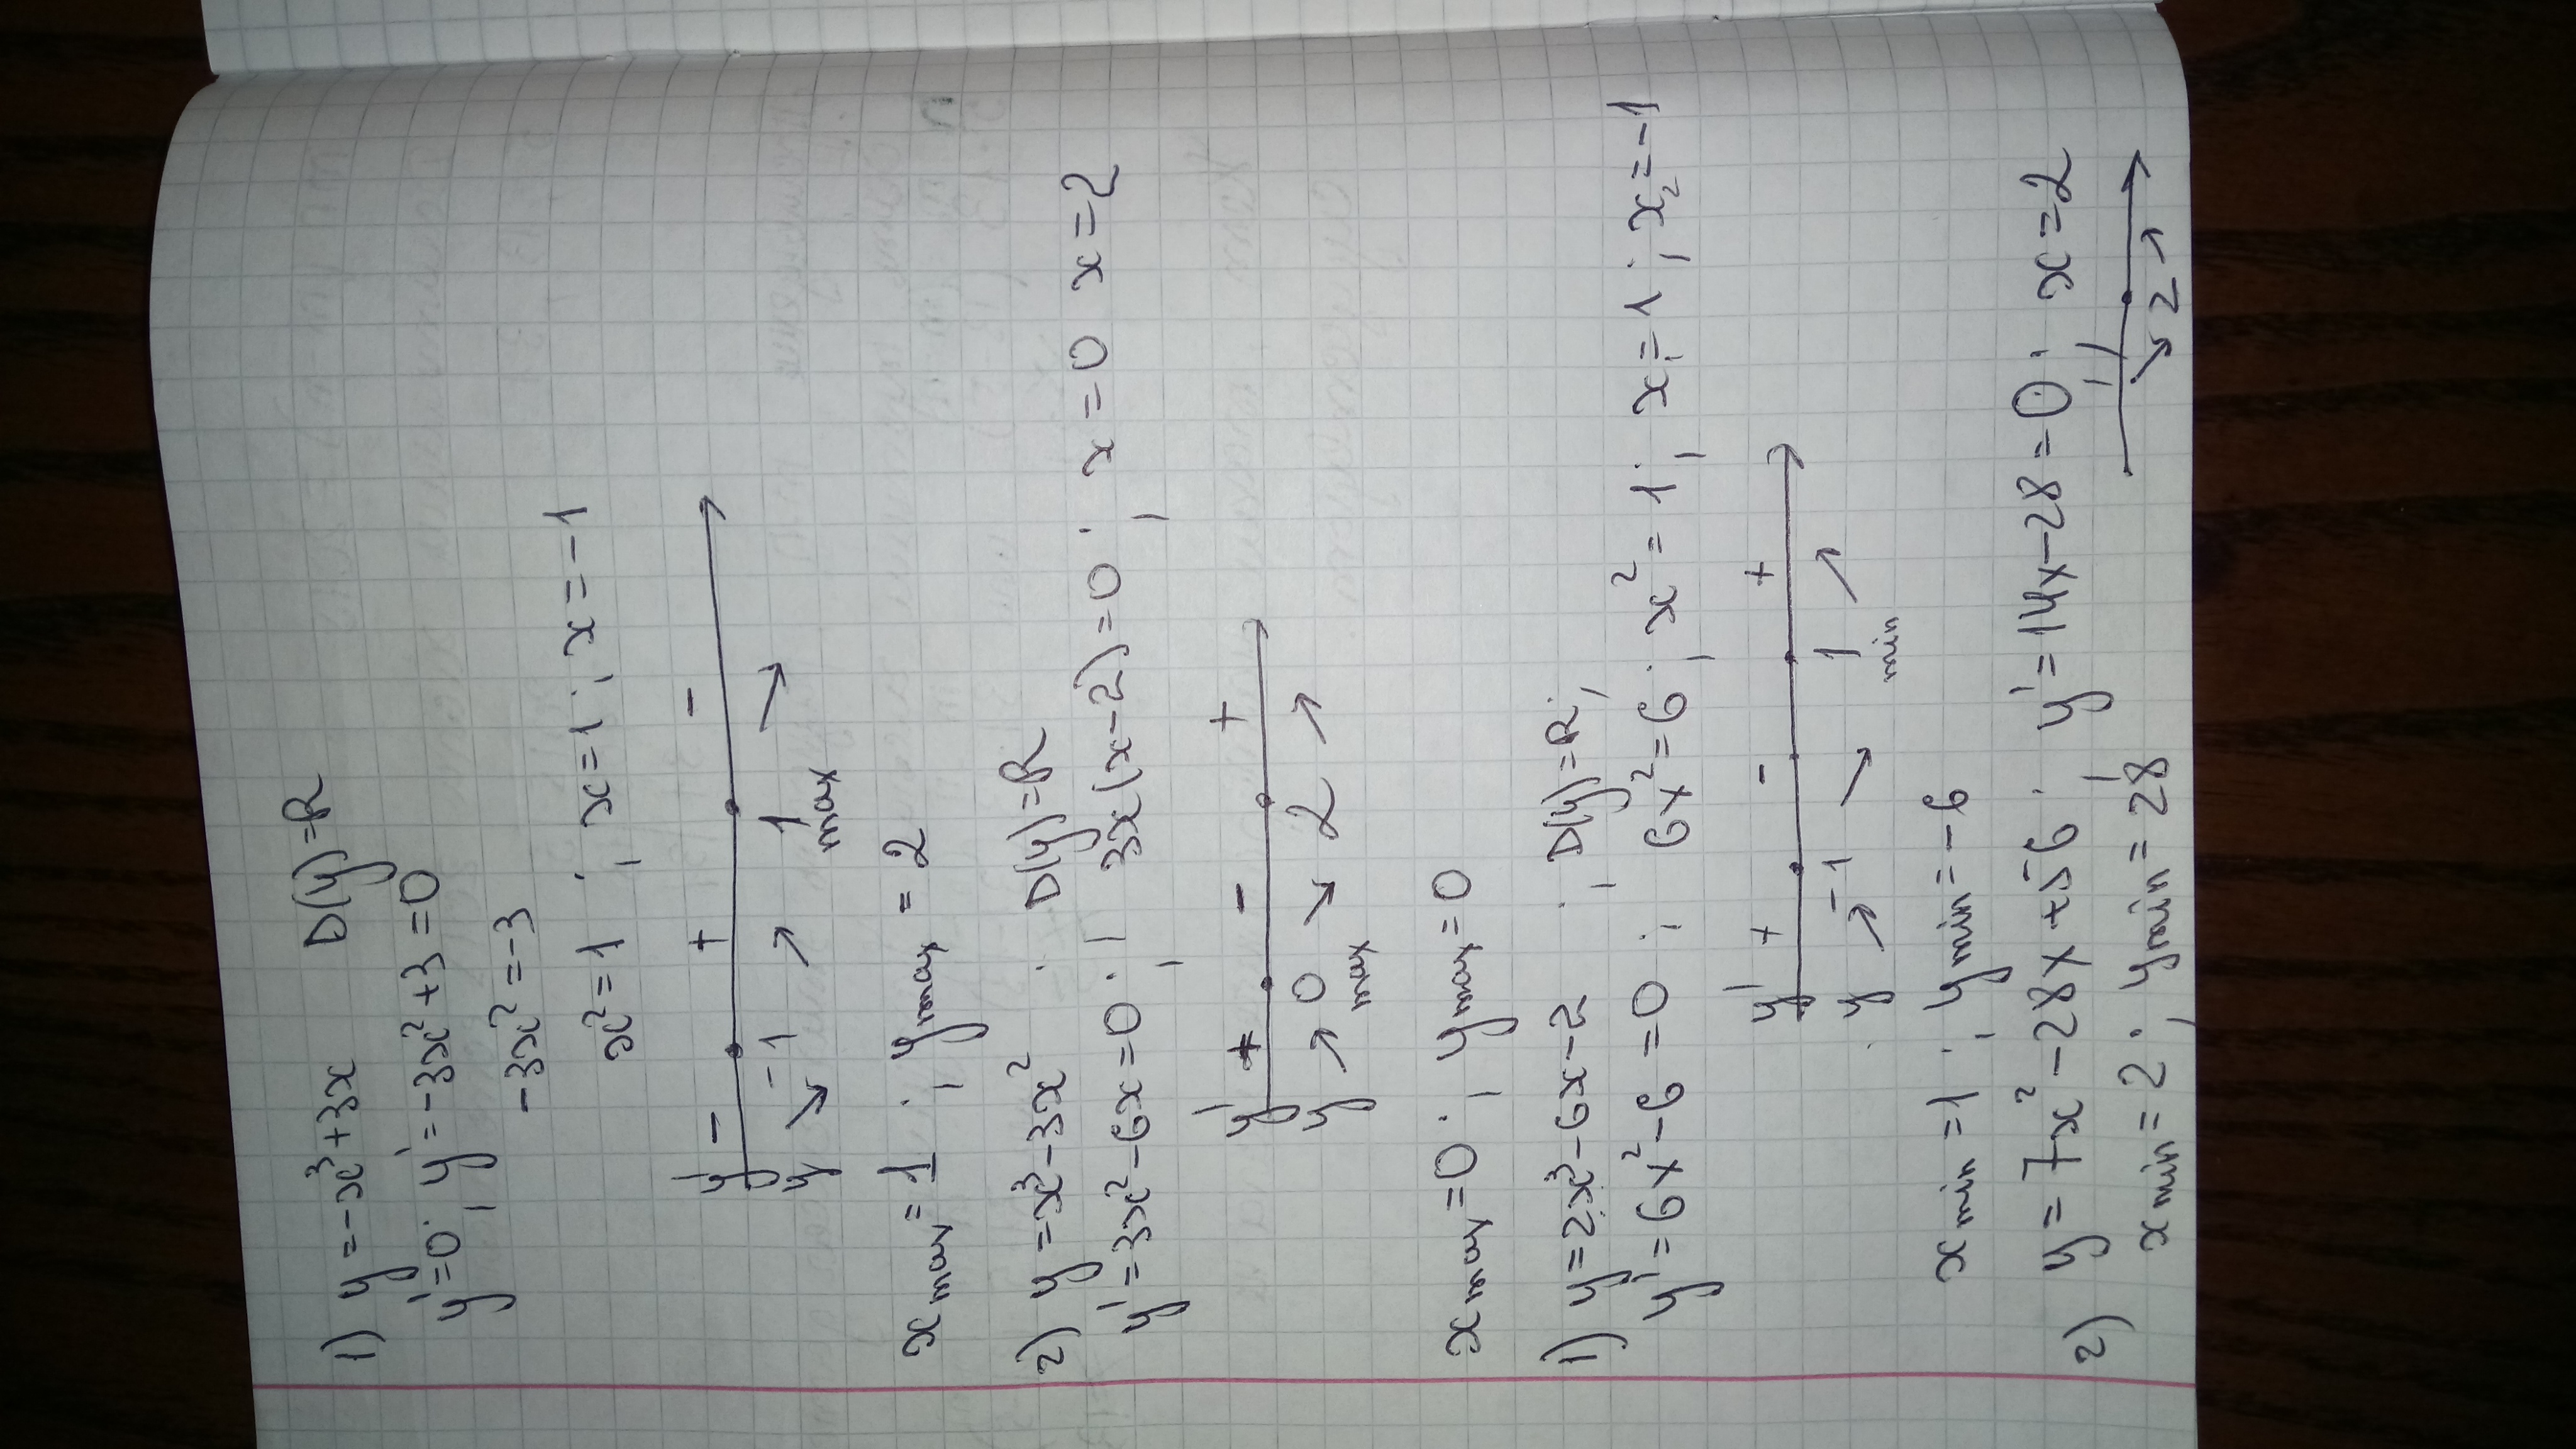 1) y=-x³+3x D(y)=R
y'=0; y'=-3x²+3=0
-3x²=-3
x²=1; x=1; x=-1
y' - + -
y -1 1
max
x max = 1; y max = 2
2) y=x³-3x²; D(y)=R
y'=3x²-6x=0; 3x(x-2)=0; x=0 x=2
y' + - +
y ↗ 0 ↘ 2 ↗
max
x max=0; y max=0
1) y=2x³-6x-2; D(y)=R;
y'=6x²-6=0; 6x²=6; x²=1; x₁=1; x₂=-1
y' + - +
y ↗ -1 ↘ 1 ↗
min
x min=1; y min=-6
2) y=7x²-28x+56; y'=14x-28=0; x=2
x min=2; y min=28 ↘ 2 ↗